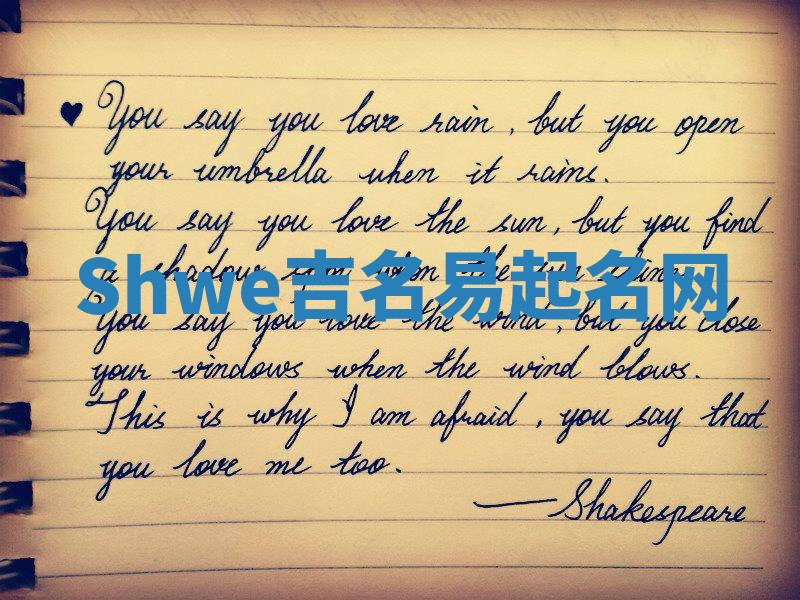 ♥ You say you love rain, but you open
your umbrella when it rains.
You say you love the sun, but you find
a shadow when the sun
Shwe吉名易起名网
You say you love the wind, but you close
your windows when the wind blows.
This is why I am afraid, you say that
you love me too.
—Shakespeare